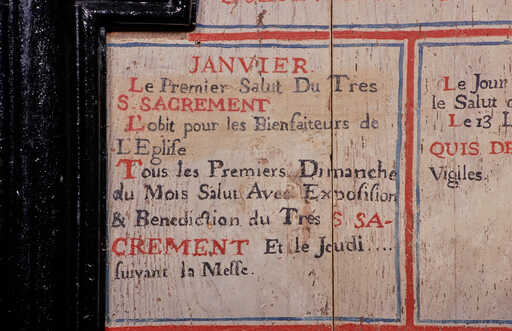 JANVIER
Le Premier Salut Du Tres
S. SACREMENT
L'obit pour les Bienfaiteurs de
L'Eglise
Tous les Premiers Dimanche
du Mois Salut Avec Exposision
& Benediction du Tres S SA-
CREMENT Et le Jeudi....
suivant la Messe.
Le Jour
le Salut
Le 13
QUIS DE
Vigiles.